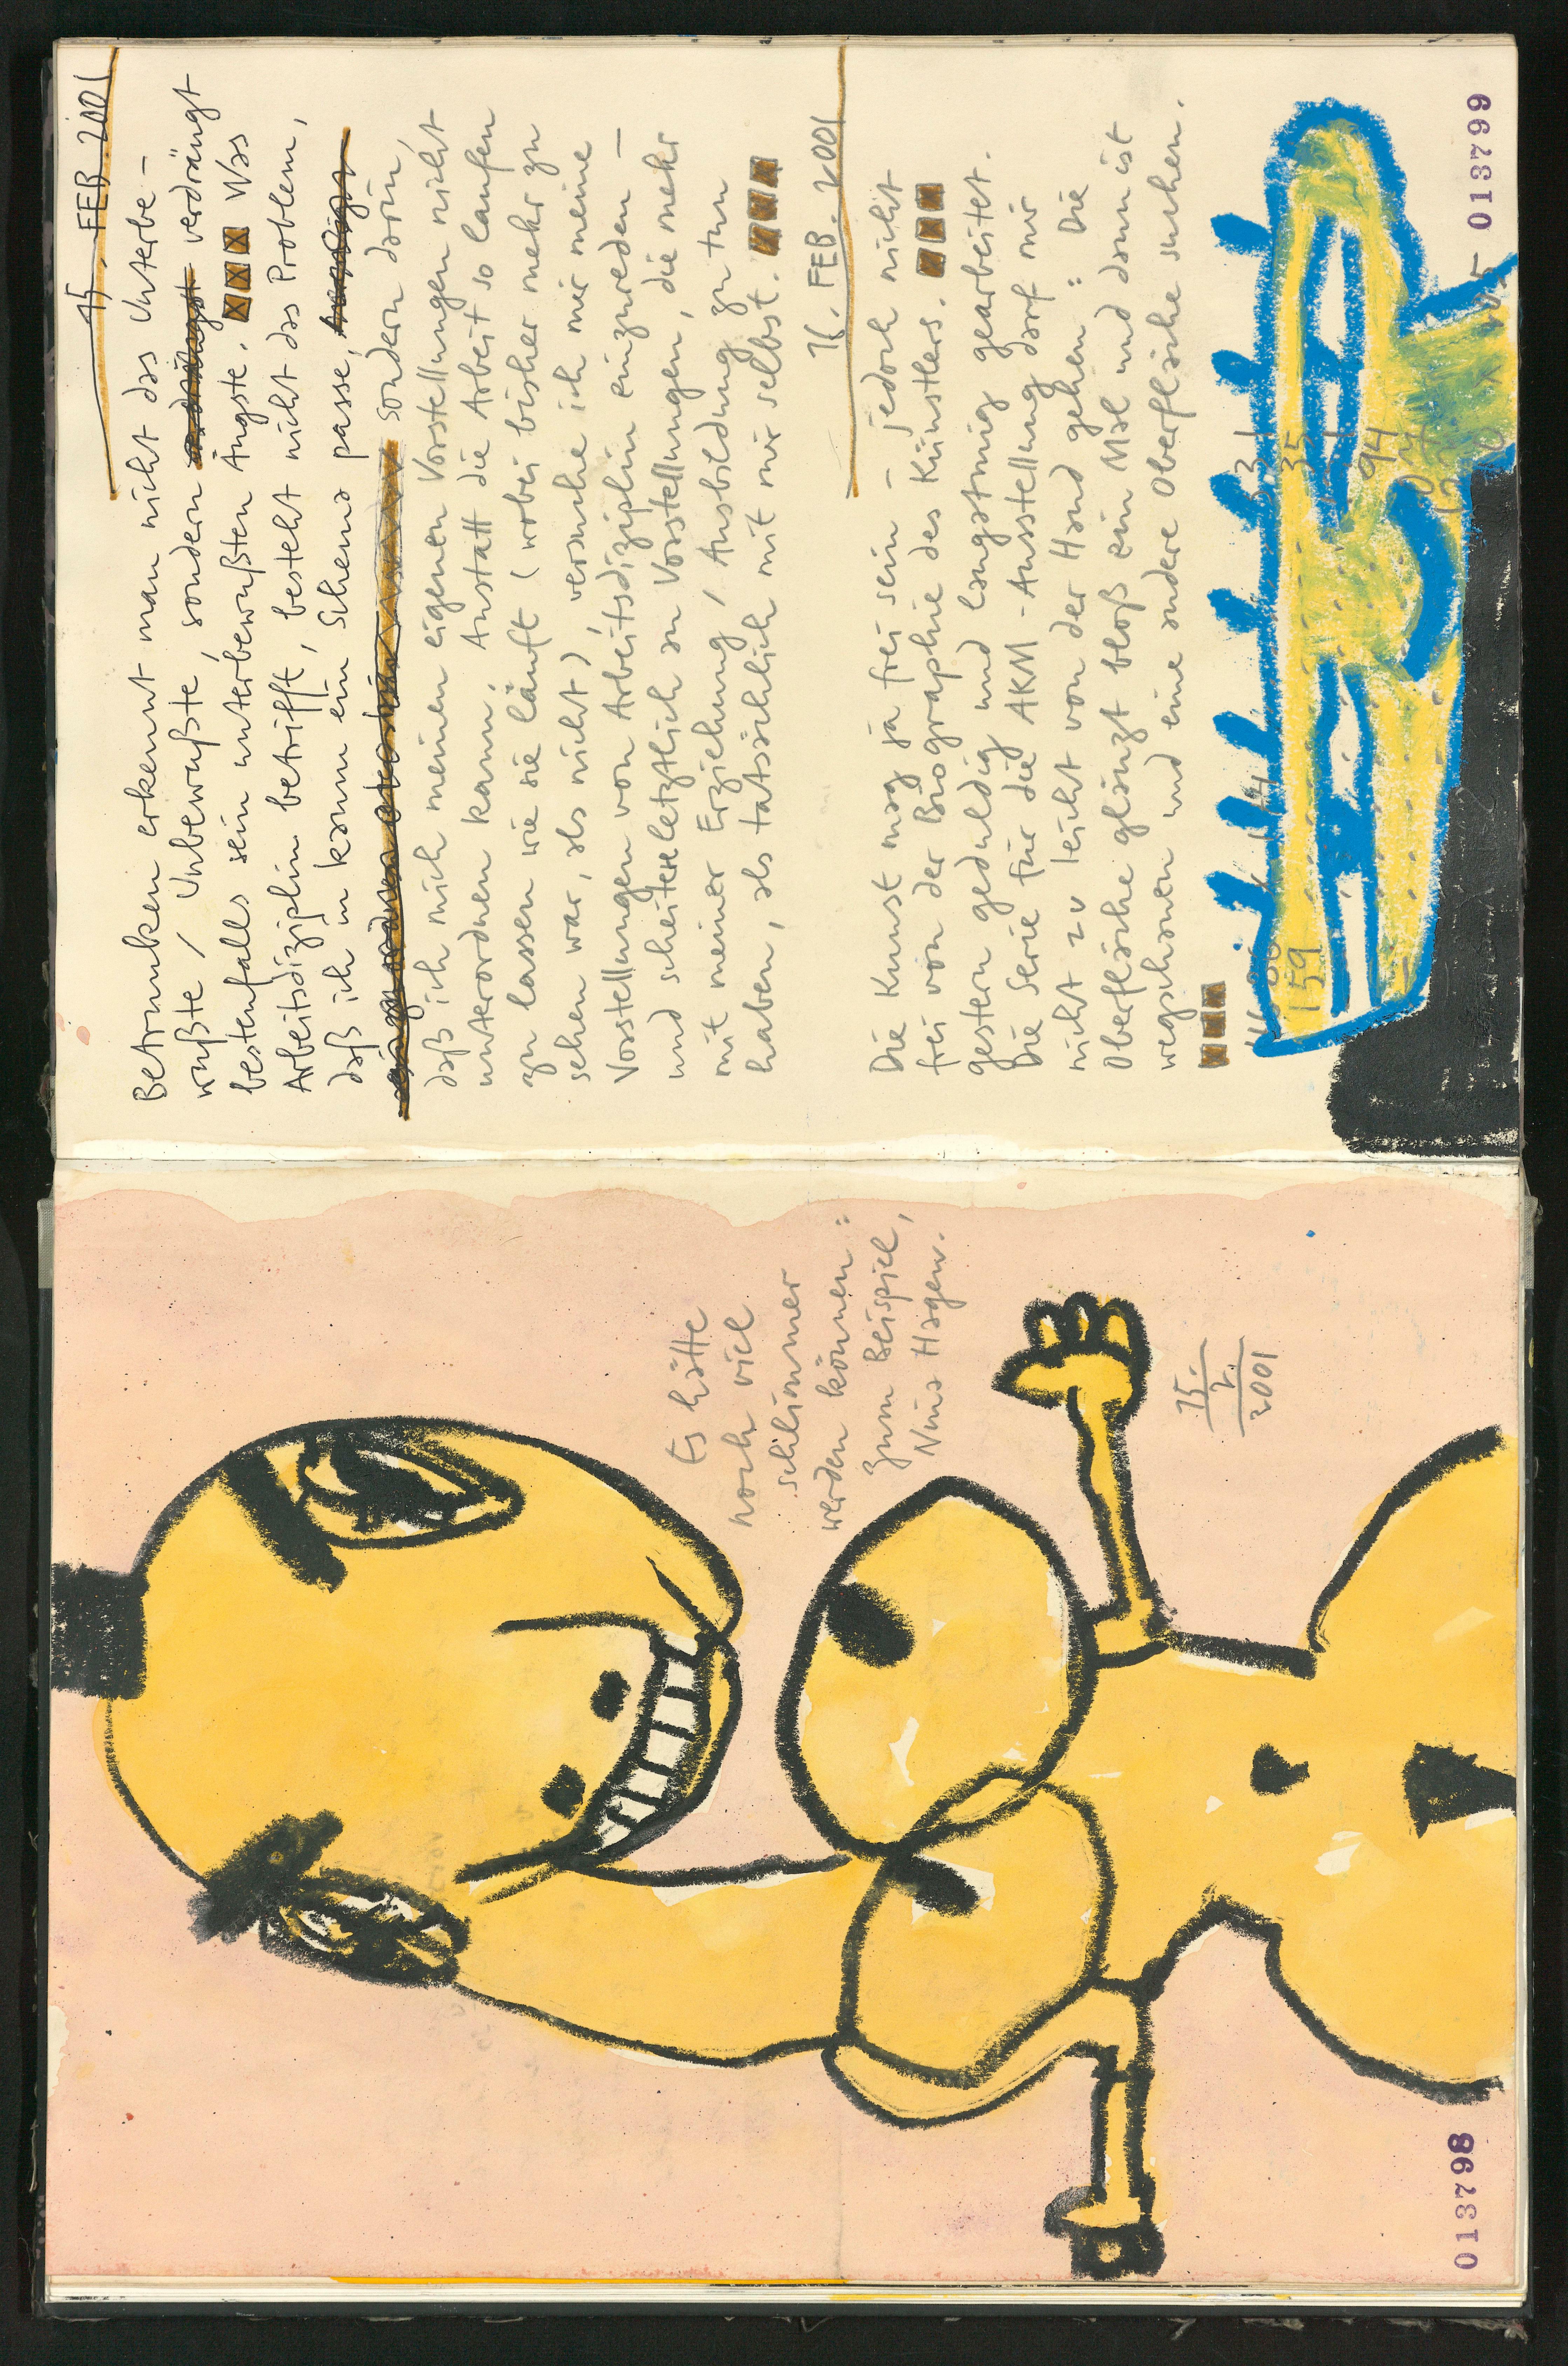 Es hätte
noch viel
schlimmer
werden können:
zum Beispiel,
Nina Hagen.
15.
2.
2001
013798
15. FEB. 2001
Betrunken erkennt man nicht das Unterbe-
wußte / Unbewußte, sondern verdrängt
bestenfalls sein unterbewußten Ängste. Was
Arbeitsdiziplin betrifft, besteht nicht das Problem,
daß ich in kann ein Schema passe,
sondern darin,
daß ich mich meinen eigenen Vorstellungen nicht
unterordnen kann. Anstatt die Arbeit so laufen
zu lassen wie sie läuft (wobei bisher mehr zu
sehen war, als nicht), versuche ich mir meine
Vorstellungen von Arbeitsdiziplin einzureden –
und scheitere letztlich an Vorstellungen, die mehr
mit meiner Erziehung / Ausbildung zu tun
haben, als tatsächlich mit mir selbst.
16. FEB. 2001
Die Kunst mag ja frei sein – jedoch nicht
frei von der Biographie des Künstlers.
gestern geduldig und langatmig gearbeitet.
Die Serie für die AKM-Ausstellung darf mir
nicht zu leicht von der Hand gehen: Die
Oberfläche glänzt bloß ein Mal und dann ist
wegschonen und eine andere Oberfläche suchen.
159
35
94
013799